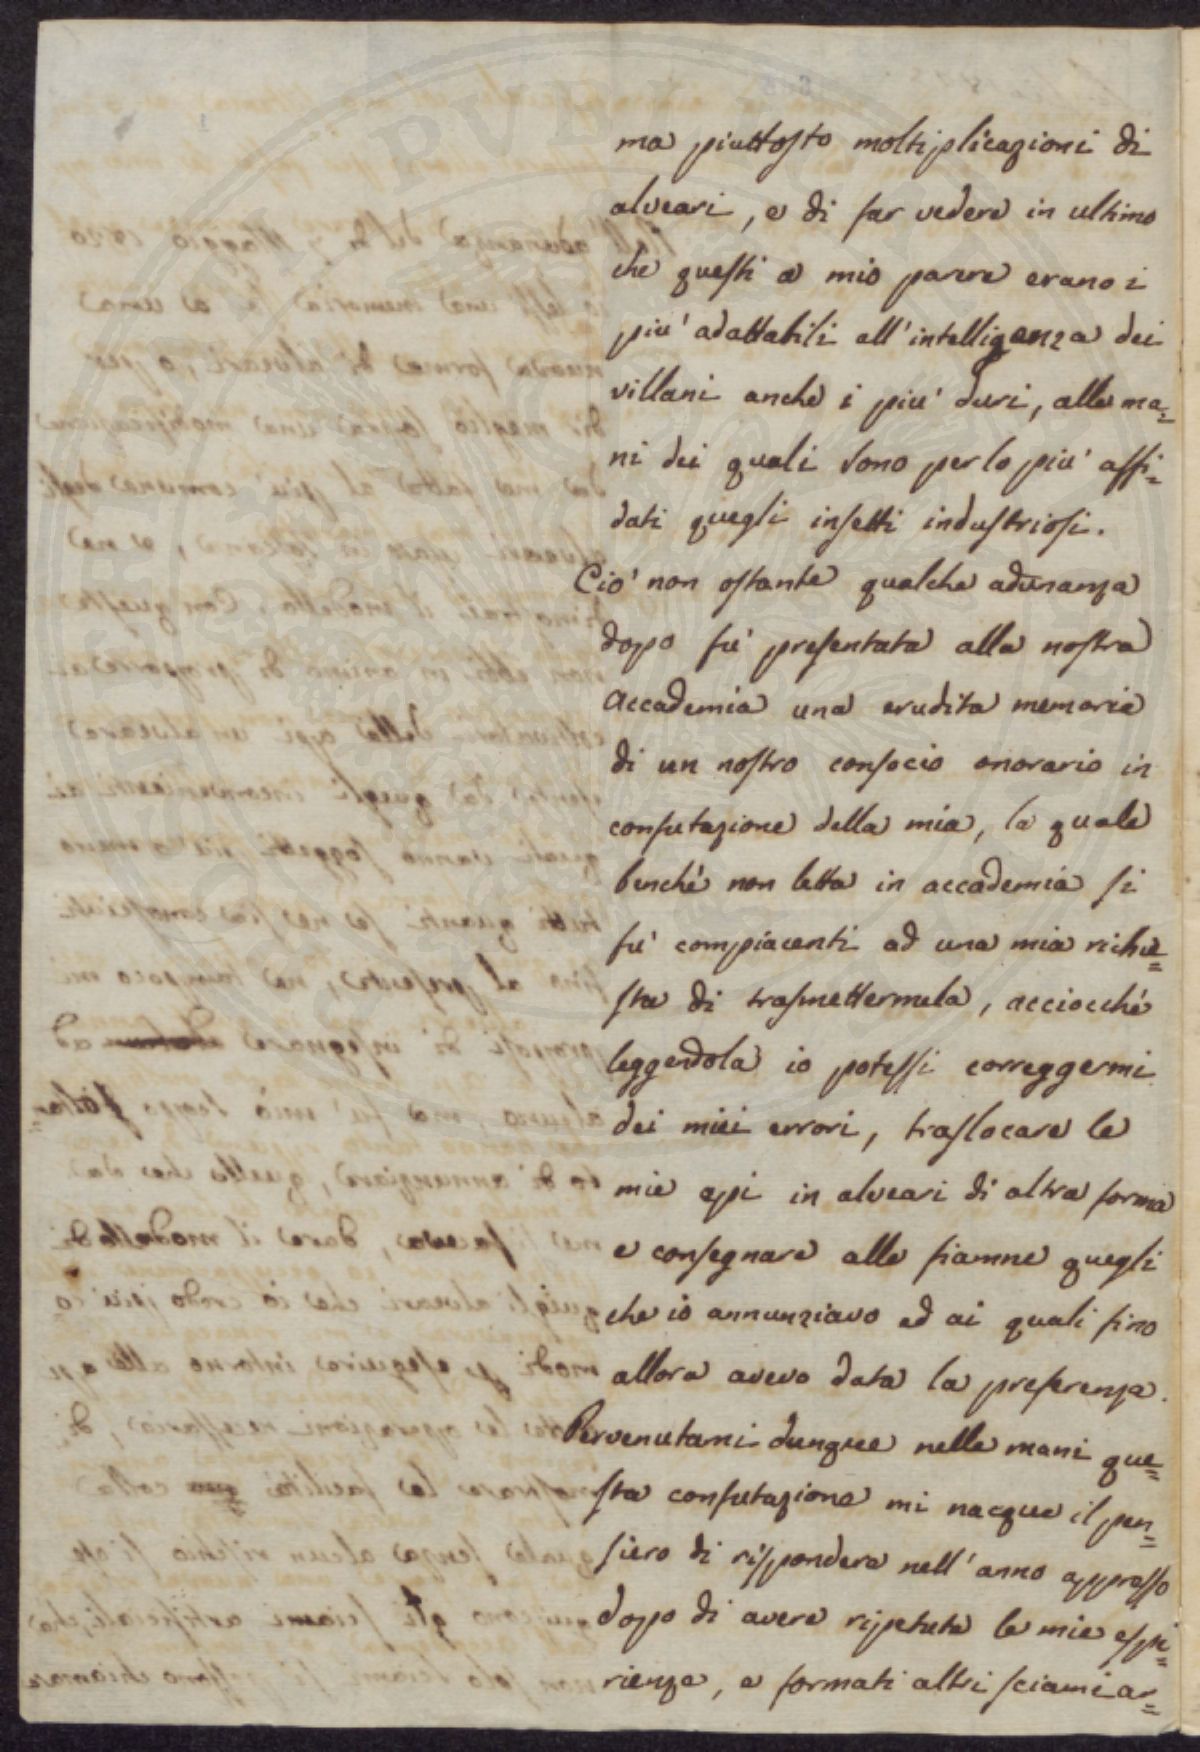 ma piuttosto moltiplicazioni di
alveari, e di far vedere in ultimo
che questi a mio parere erano i
più adattabili all'intelligenza dei
villani anche i più duri, alle ma=
ni dei quali sono per lo più affi=
dati quegli insetti industriosi.
Ciò non ostante qualche adunanza
dopo fù presentata alla nostra
Accademia una erudita memoria
di un nostro consocio onorario in
confutazione della mia, la quale
benché non letta in accademia si
fù compiacenti ad una mia richie=
sta di trasmettermela, acciocché
leggendola io potessi correggermi
dei miei errori, traslocare le
mie api in alveari di altra forma
e consegnare alle fiamme quegli
che io annunziavo ed ai quali fino
allora avevo data la preferenza.
Pervenutami dunque nelle mani que=
sta confutazione mi nacque il pen=
siero di rispondere nell'anno appresso
dopo di avere ripetute le mie espe=
rienze, e formati altri sciami ar=